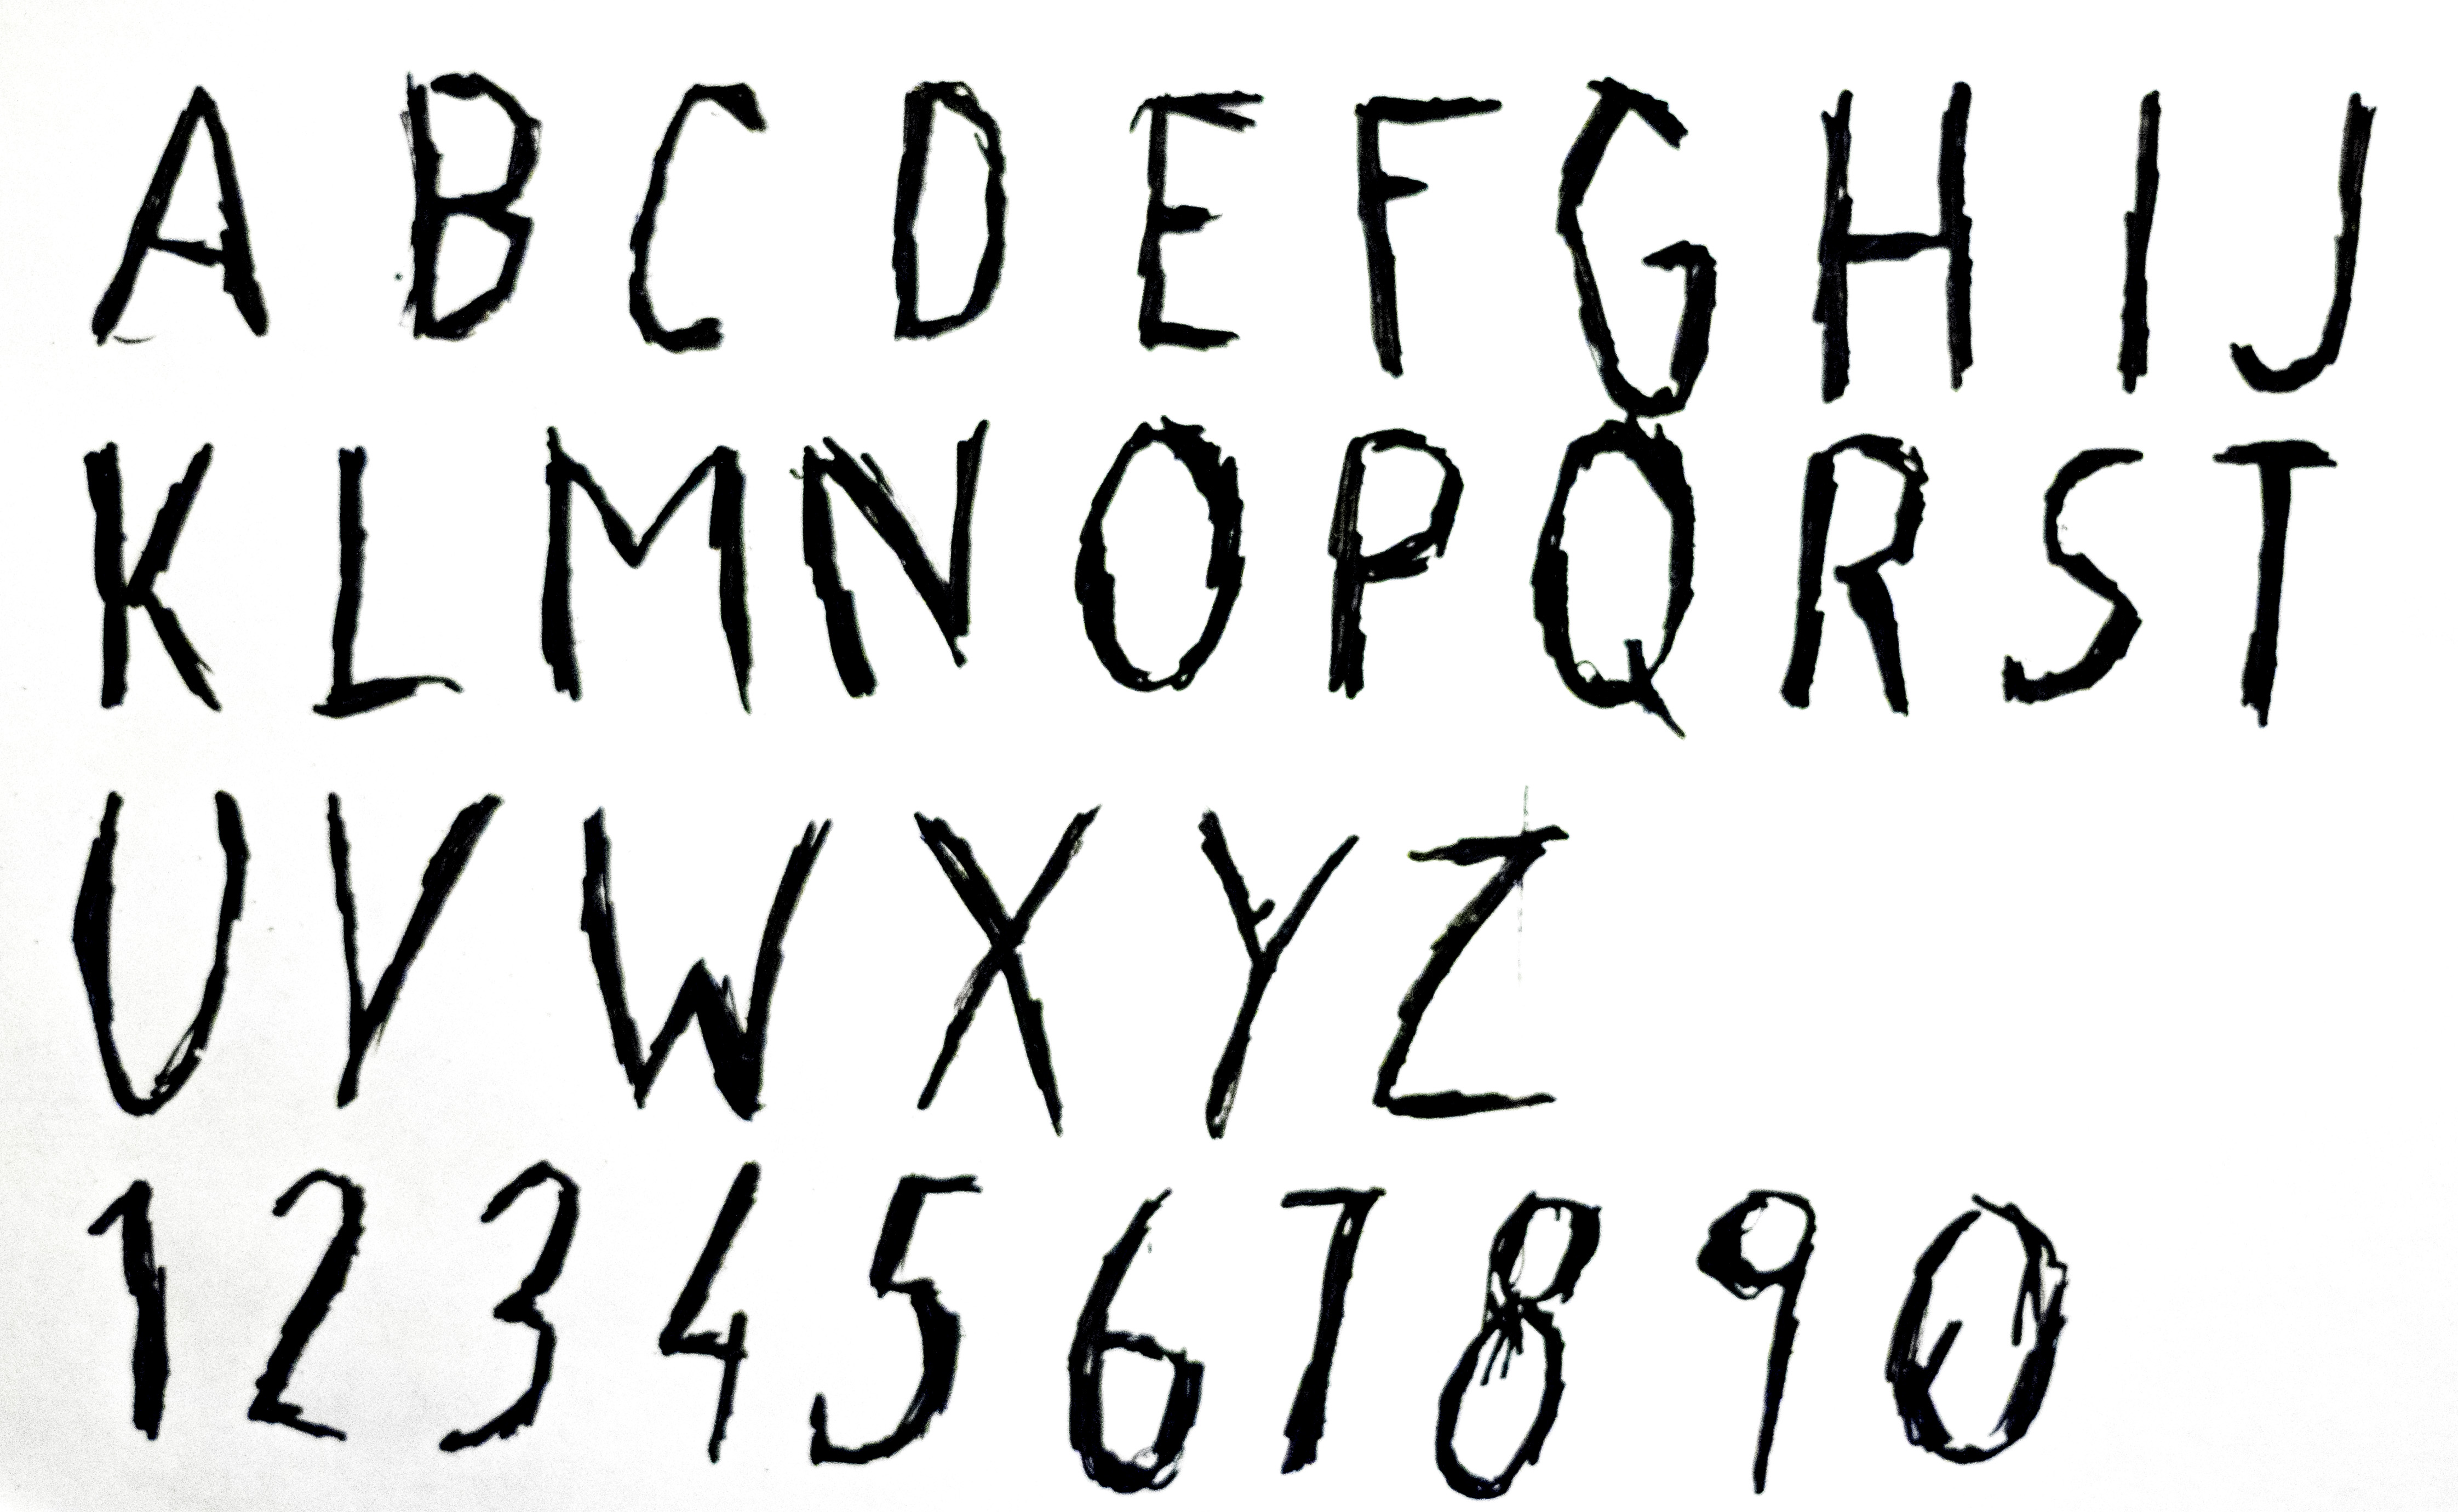 A B C D E F G H I J
K L M N O P Q R S T
U V W X Y Z
1 2 3 4 5 6 7 8 9 0